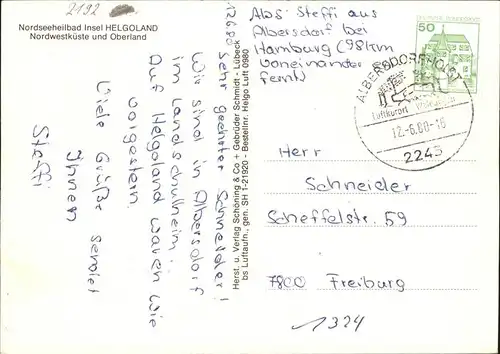 2192
Nordseeheilbad Insel HELGOLAND
Nordwestküste und Oberland
12.6.80
Sehr geehrter Schneider!
Wir sind in Albersdorf
im Landschulheim.
Auf Helgoland waren wir
vorgestern
Viele Grüße sendet
Ihnen
Steffi
Herst. u. Verlag Schöning & Co + Gebrüder Schmidt - Lübeck
bs Luftaufn., gen. SH 1-21920 - Bestellnr. Helgo Luft 0980
Abs: Steffi aus
Albersdorf bei
Hamburg (98km
voneinander
fernt)
50
ALBERSDORF, HOLST
Luftkurort
12.-6.80-16
2243
Herr
Schneider
Scheffelstr. 59
7800 Freiburg
1324